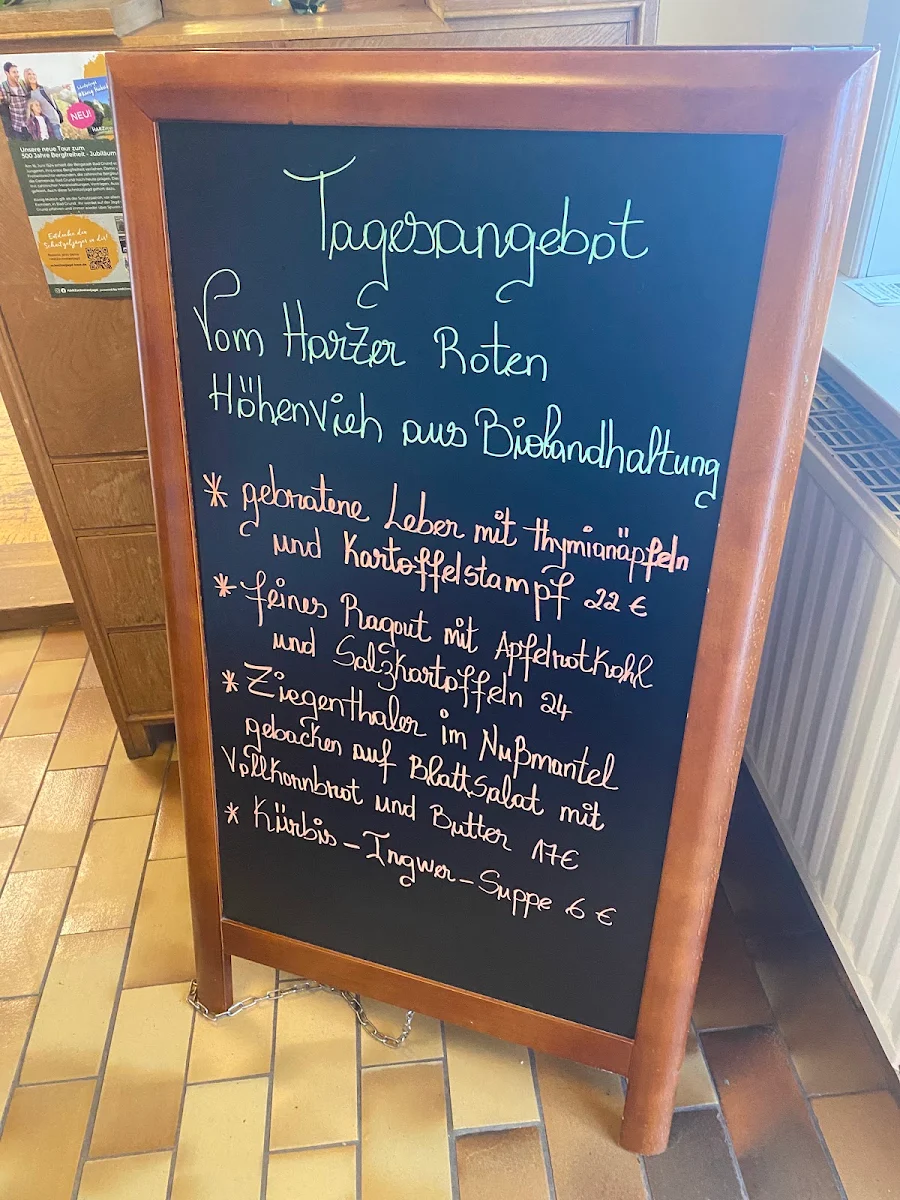 NEU!
Unsere neue Tour zum
500 Jahre Bergfreiheit - Jubiläum
Entdecke den
Tagesangebot
Vom Harzer Roten
Höhenvieh aus Biolandhaltung
* gebratene Leber mit Thymianäpfeln
und Kartoffelstampf 22 €
* feines Ragout mit Apfelrotkohl
und Salzkartoffeln 24
* Ziegenthaler im Nußmantel
gebacken auf BlattSalat mit
Vollkornbrot und Butter 17€
* Kürbis-Ingwer-Suppe 6 €